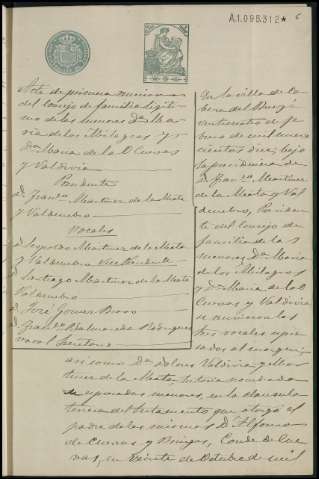 A.1.095.312* 6
Acta de primera reunion
del Consejo de familia legiti-
mo de las menores Dª Ma-
ria de los Milagros y
Dª Maria de la O Cuevas
y Valdivia
Presidente
D. Franco Martinez de la Mata
y Valdenebro
Vocales
D. Leopoldo Martinez de la Mata
y Valdenebro Vice Presidente
D. Santiago Martinez de la Mata
Valdenebro
D. José Gomez Bravo
D. Franco Balmaseda Rodriguez
vocal Secretario
En la villa de la
de mil nueve
cientos diez, bajo
la presidencia de
D. Franco Martinez
de la Mata y Val
denebro, Presiden
te del Consejo de
familia de las
menores Dª Maria
de los Milagros
y Dª Maria de la O
Cuevas y Valdivia
se reunieron los
tres vocales expre
sados al margen;
asi como Dª Dolores Valdivia y Mar
tinez de la Mata, tutora nombrada
de expresadas menores, en la clausula
tercera del testamento que otorgó el
padre de las mismas D. Alfonso
de Cuevas y Burgos, Conde de Cue
vas, en veinte de Octubre de mil